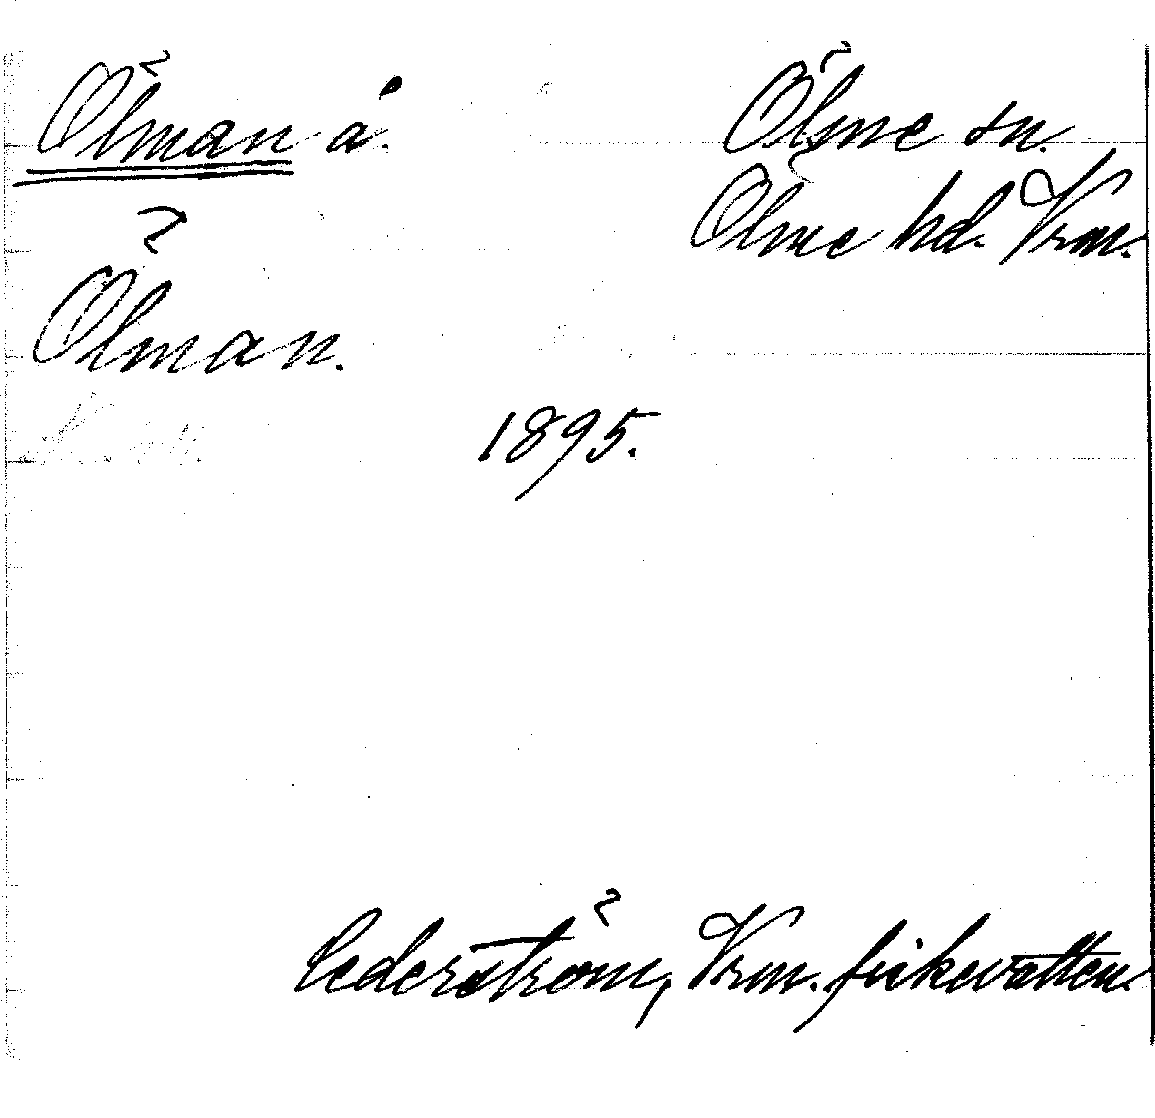 Ölman å.
Ölme sn.
Ölme hd. Vrm.
Ölman.
1895.
Cederström, Vrm. fiskevatten.